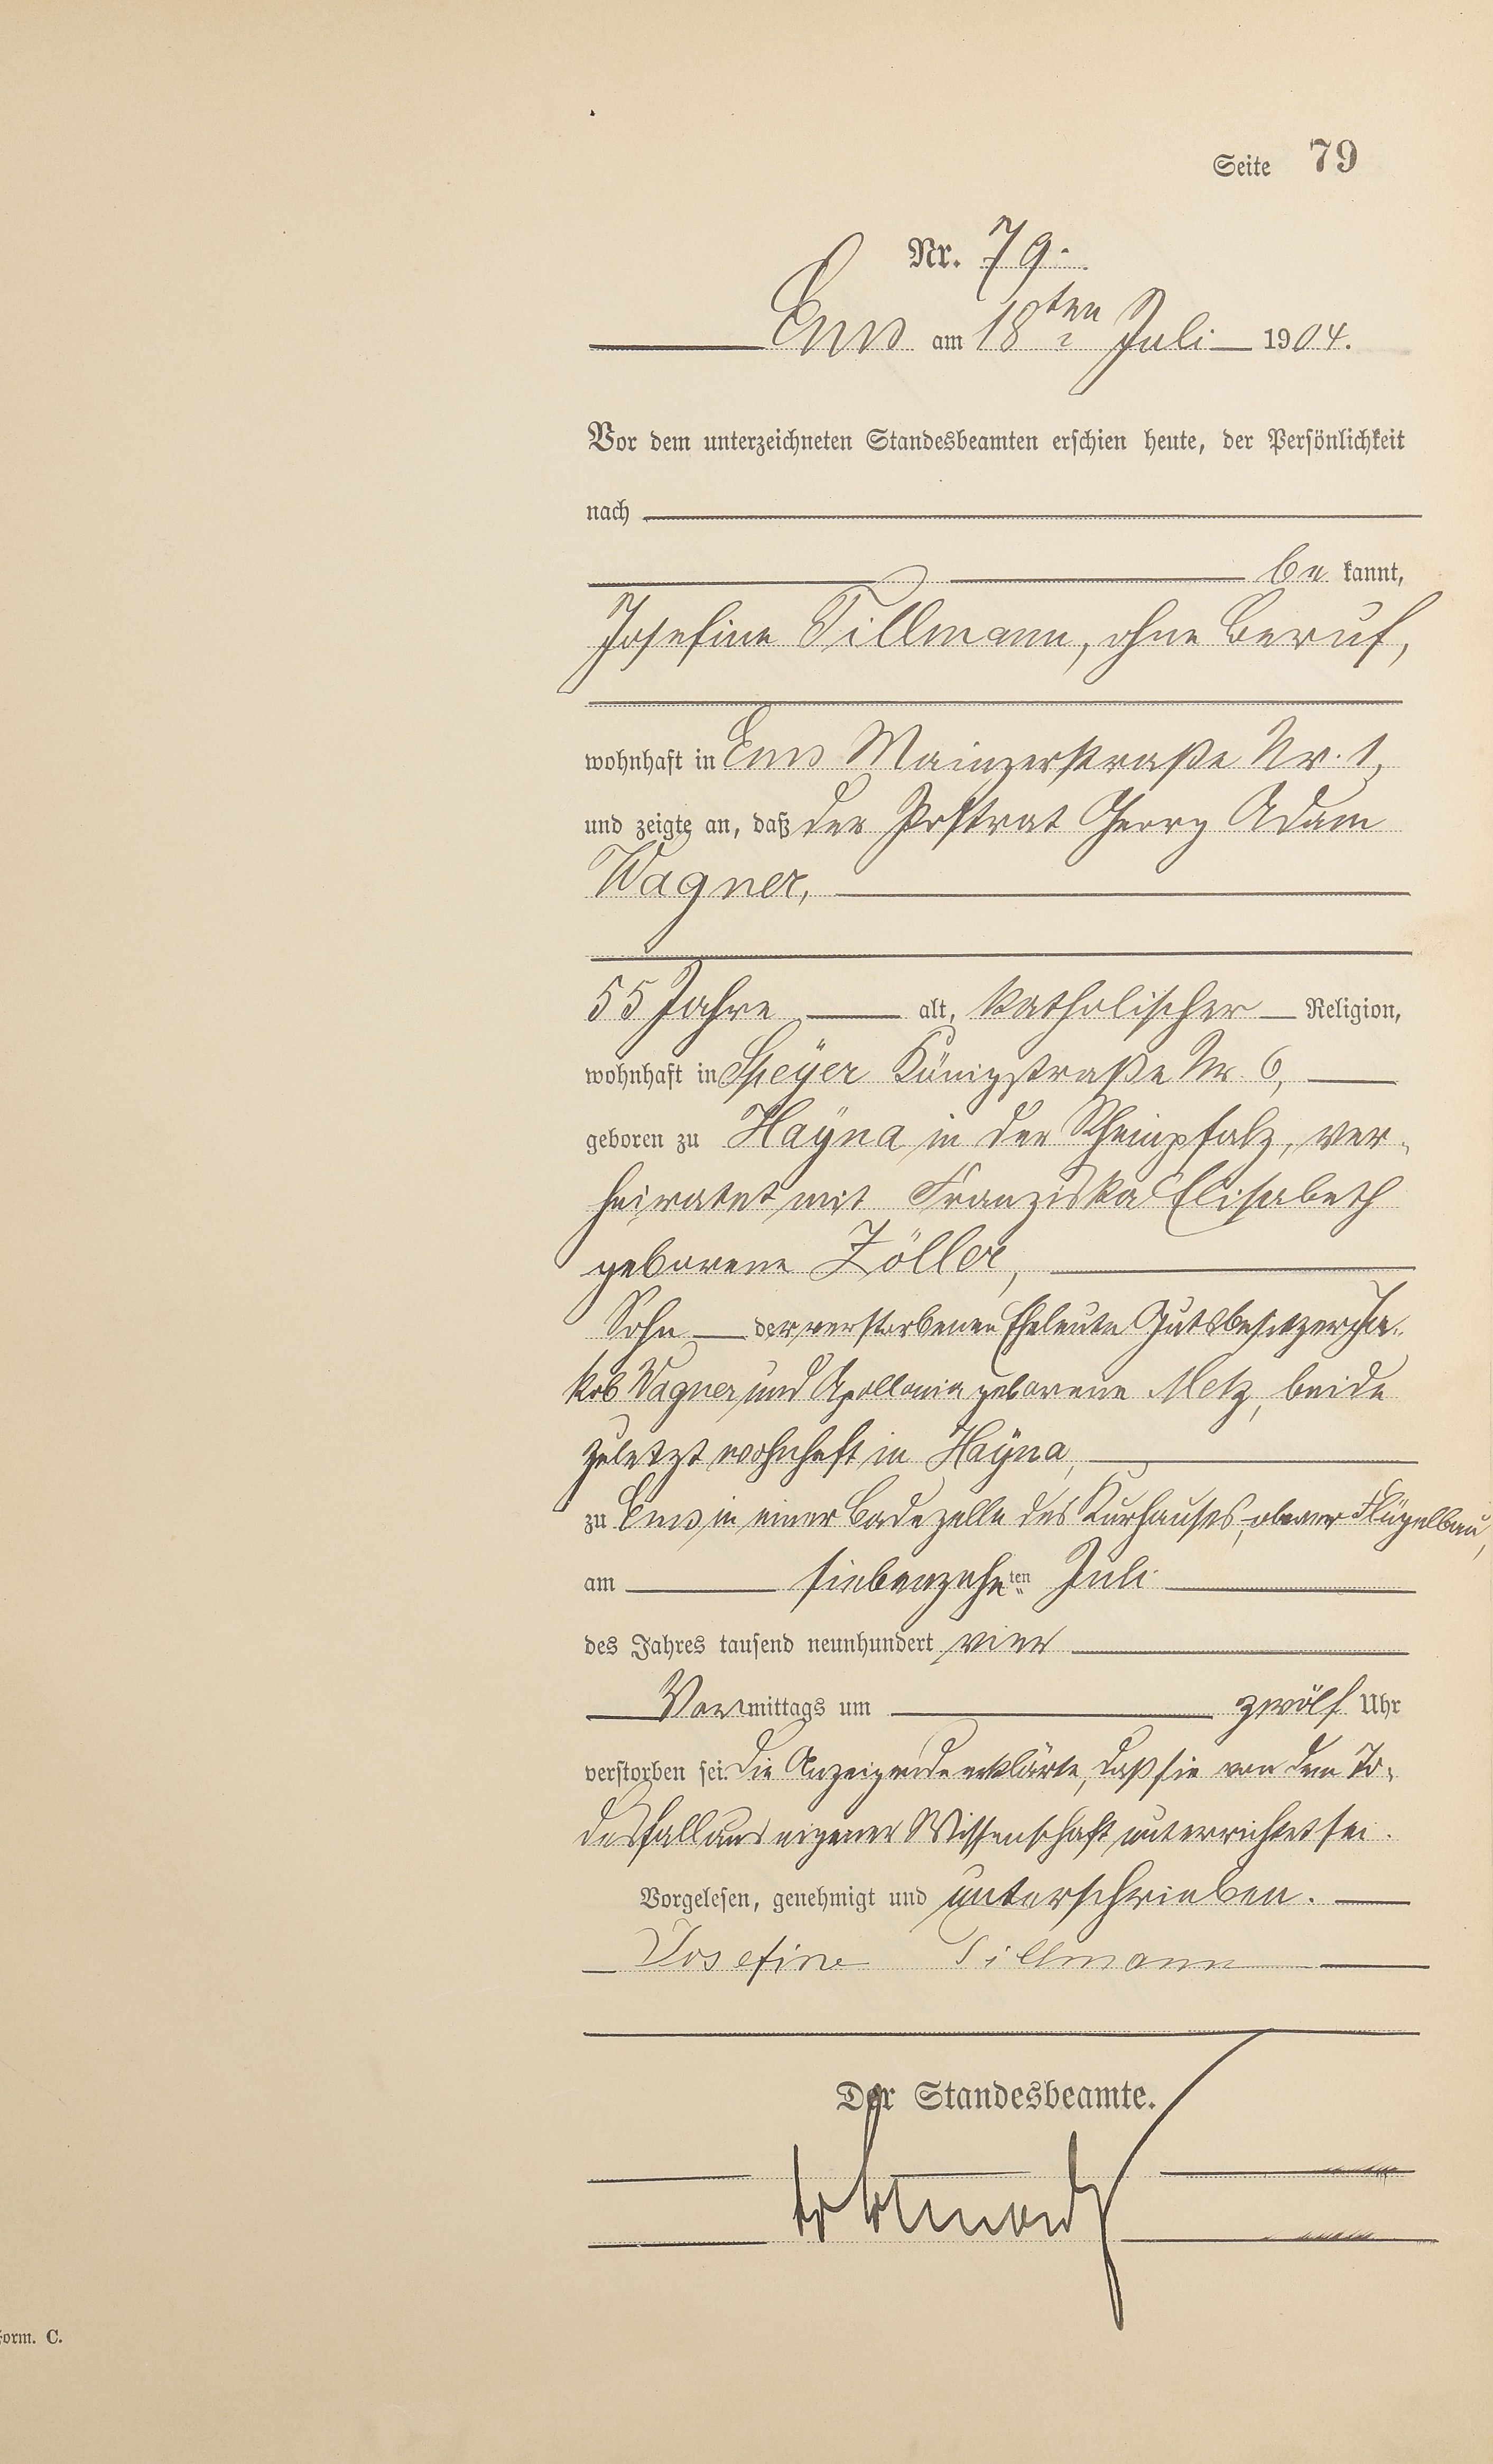 Seite 79
Nr. 79.
Ems am 18ten Juli 1904.
Vor dem unterzeichneten Standesbeamten erschien heute, der Persönlichkeit
nach
be kannt,
Josefine Tillmann, ohne Beruf,
wohnhaft in Ems Mainzerstraße Nr. 1,
und zeigte an, daß der Postrat Georg Adam
Wagner,
55 Jahre alt, katholischer Religion,
wohnhaft in Speÿer Königstraße Nr. 6,
geboren zu Haÿna in der Rheinpfalz, ver-
heiratet mit Franziska Elisabeth
geborene Zöller,
Sohn der verstorbenen Eheleute Gutsbesitzer Ja-
kob Wagner und Apollonia geborene Metz, beide
zuletzt wohnhaft in Haÿna,
zu Ems in einer Badezelle des Kurhauses, oberer Flügelbau,
am siebenzehnten Juli
des Jahres tausend neunhundert vier
Vormittags um zwölf Uhr
verstorben sei. Die Anzeigende erklärte, daß sie von dem To-
desfall aus eigener Wissenschaft unterrichtet sei.
Vorgelesen, genehmigt und unterschrieben.
Josefine Tillmann
Der Standesbeamte.
Form. C.